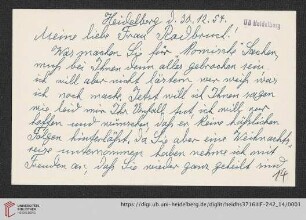 Heidelberg d. 30.12.54.
UB Heidelberg
Meine liebe Frau Radbruch!
Was machen Sie für komische Sachen,
muß bei Ihnen denn alles gebrochen sein
ich will aber nicht lästern wer weiß was
ich noch mache. Jetzt will ich Ihnen sagen
wie leid mir Ihr Unfall tut, ich will nur
hoffen und wünschen daß er keine häßlichen
Folgen hinterläßt, da Sie aber eine Weihnachts
reise unternommen haben nehme ich mit
Freuden an, daß Sie wieder ganz geheilt sind
14
UNIVERSITÄTS-
BIBLIOTHEK
HEIDELBERG
https://digi.ub.uni-heidelberg.de/diglit/heidhs3716IIIF-242_14/0001